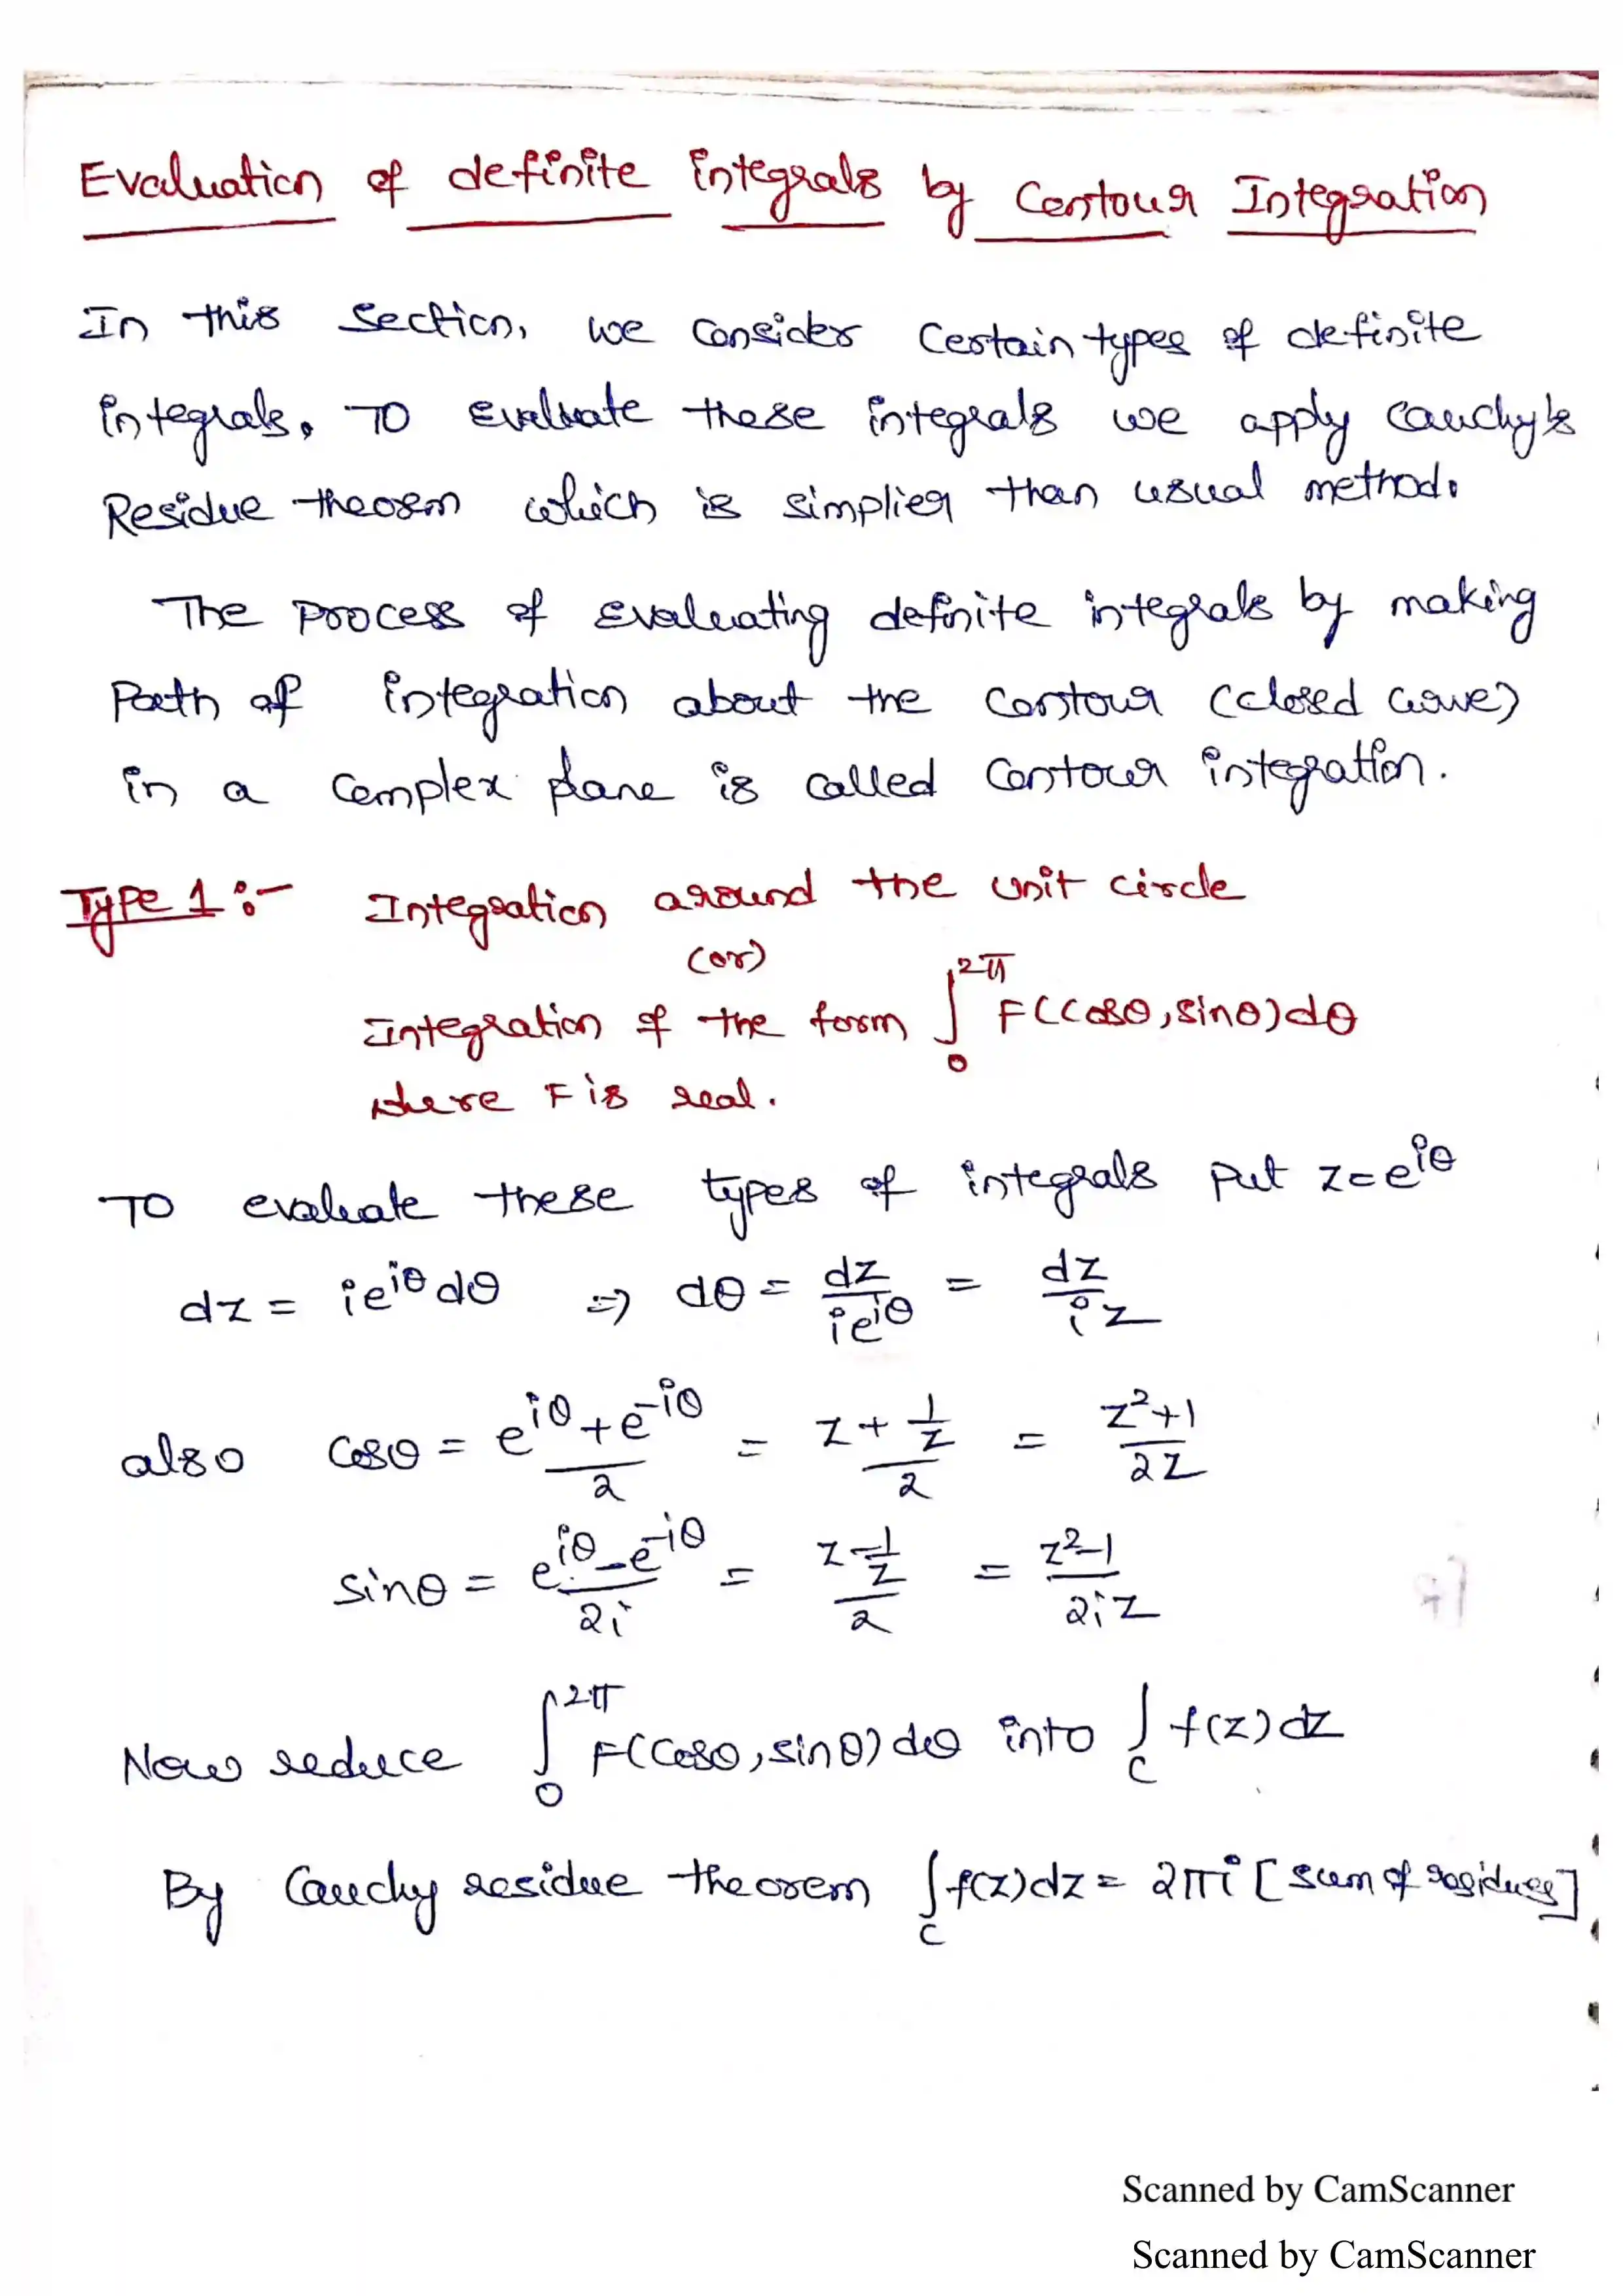 Evaluation of definite integrals by Contour Integration
In this section, we consider certain types of definite
integrals. To evaluate these integrals we apply cauchy's
Residue theorem which is simplier than usual method.
The process of evaluating definite integrals by making
Path of integration about the contour (closed curve)
in a complex plane is called contour integration.
Type 1 :- Integration around the unit circle
(or)
Integration of the form ∫₀^{2π} F(cosθ, sinθ)dθ
where F is real.
To evaluate these types of integrals put z = e^{iθ}
dz = ie^{iθ}dθ ⇒ dθ = dz/ie^{iθ} = dz/iz
also cosθ = (e^{iθ} + e^{-iθ})/2 = (z + 1/z)/2 = (z²+1)/2z
sinθ = (e^{iθ} - e^{-iθ})/2i = (z - 1/z)/2 = (z²-1)/2iz
Now reduce ∫₀^{2π} F(cosθ, sinθ)dθ into ∫_C f(z)dz
By Cauchy residue theorem ∫_C f(z)dz = 2πi [sum of residues]
Scanned by CamScanner
Scanned by CamScanner